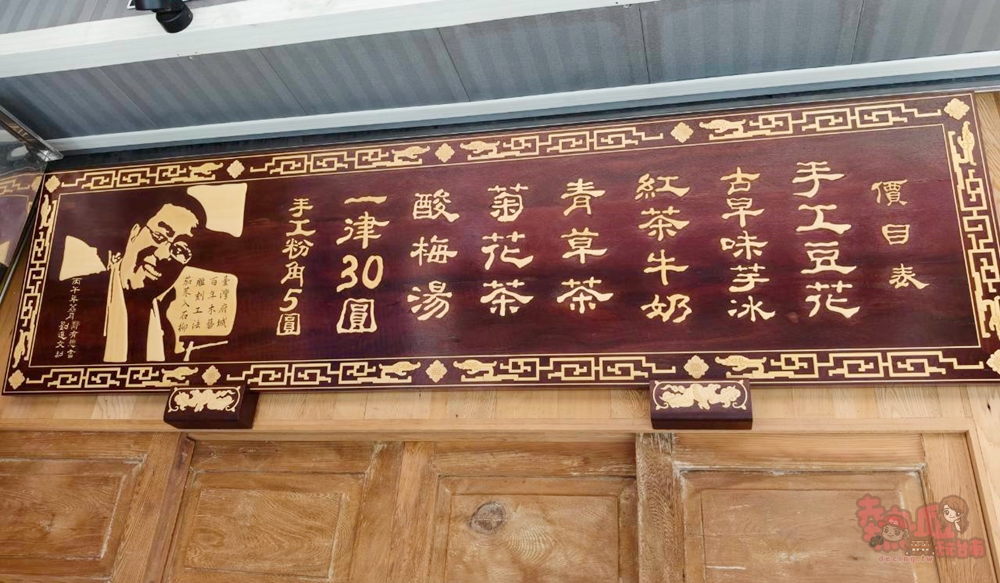 價目表
手工豆花
古早味芋冰
紅茶牛奶
青草茶
菊花茶
酸梅湯
一律30圓
手工粉角5圓
臺灣府城
百年木藝
雕刻工法
茄苳入石柳